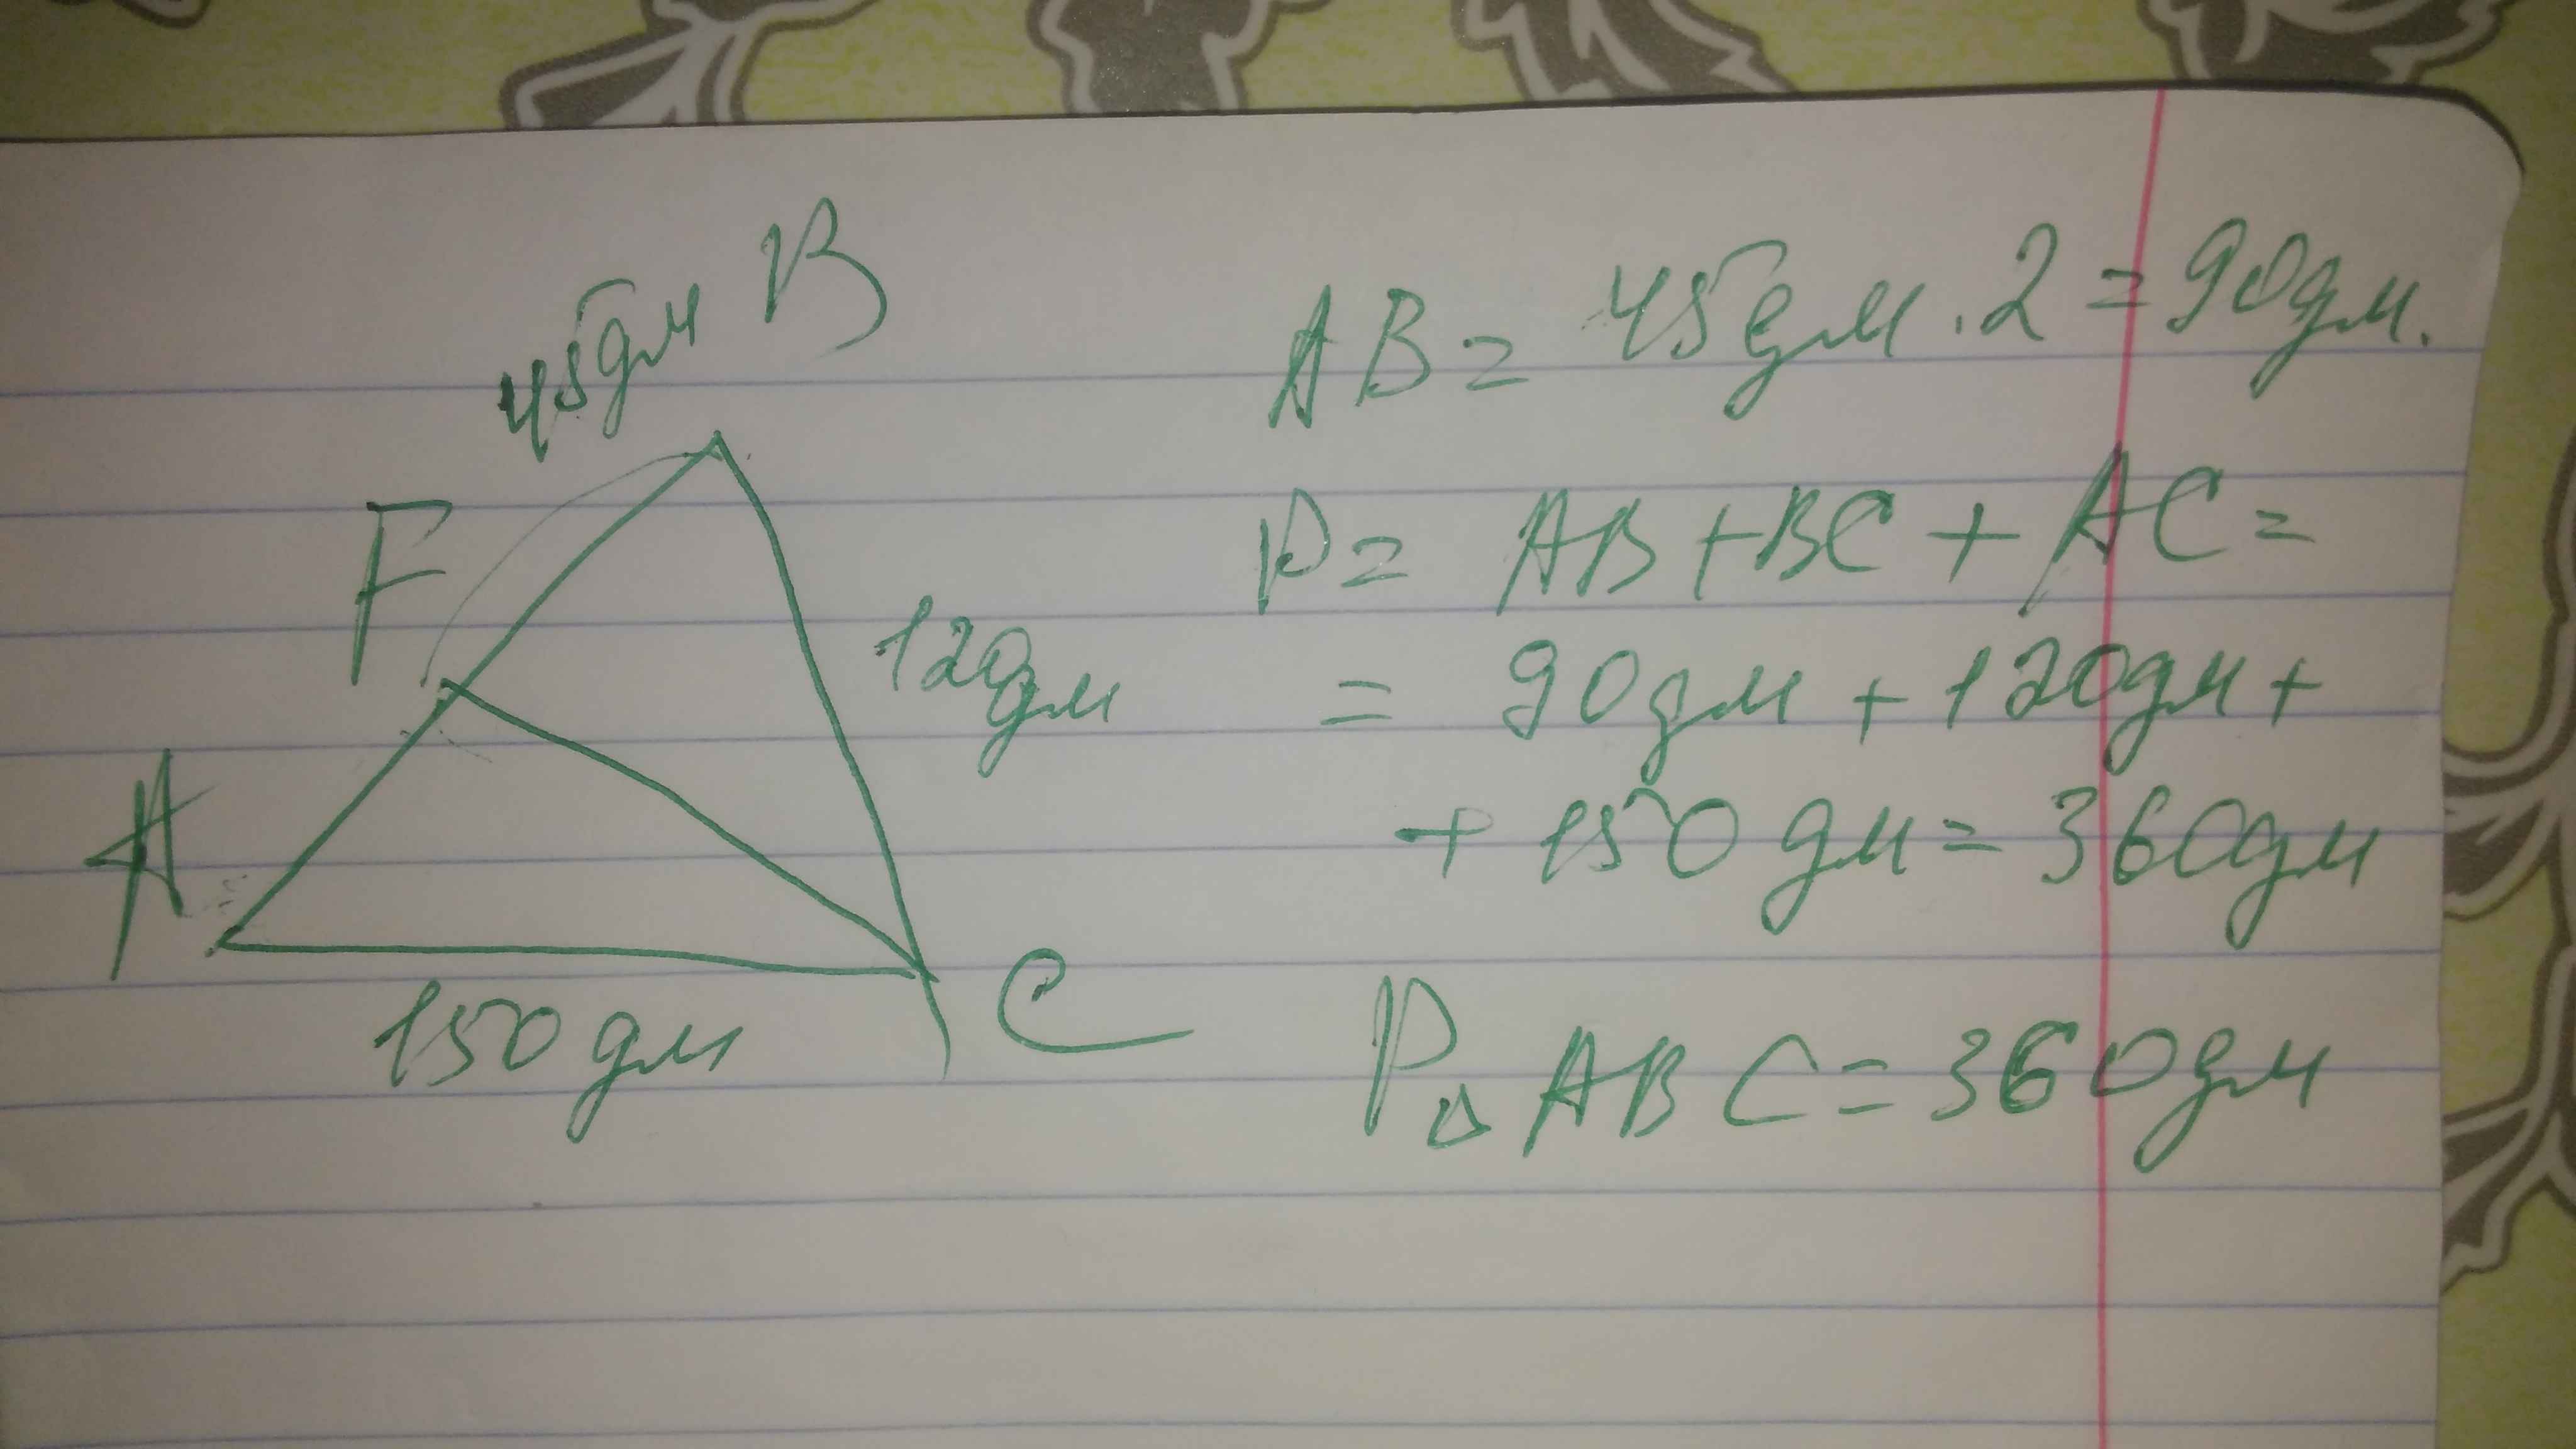 B
45дм
F
120дм
A
C
150дм
AB = 45дм . 2 = 90дм.
P = AB + BC + AC =
= 90дм + 120дм +
+ 150дм = 360дм
P△ABC = 360дм